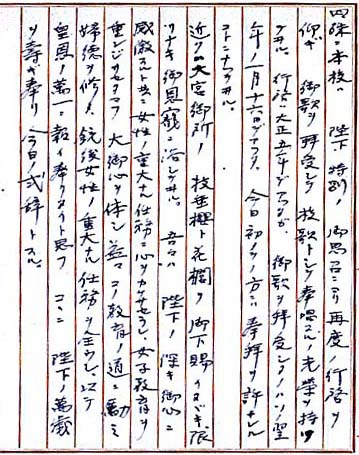 殊ニ本校ハ 陛下 特別ノ 御思召ニヨリ再度ノ行啓ヲ
仰ギ 御歌ヲ拝受シテ校歌トシテ奉唱スルノ光栄ヲ持ツ
行啓ハ大正五年デアルガ 御歌ヲ拝受シタノハソノ翌
年ノ一月十六日デアル 今日初メテノ方ニハ奉拝ヲ許サレル
コトニナツテヰル。
近クハ大宮御所ノ枝垂櫻ト花欄ヲ御下賜イタダキ限
リナキ御恩寵ニ浴シテヰル。吾々ハ 陛下ノ深キ御心ニ
感激スルト共ニ女性ノ重大ナル任務ニ心ヲカケサセラレ女子教育ヲ
重ンジサセタマフ 大御心ヲ体シ益々コノ教育ノ道ニ励ミ
婦徳ヲ修メ 銃後女性ノ重大ナル任務ヲ全ウシ以テ
皇恩ノ萬一ニ報イ奉リタイト思フ ココニ 陛下ノ萬歳
ヲ寿ギ奉リ今日ノ式辞トスル。